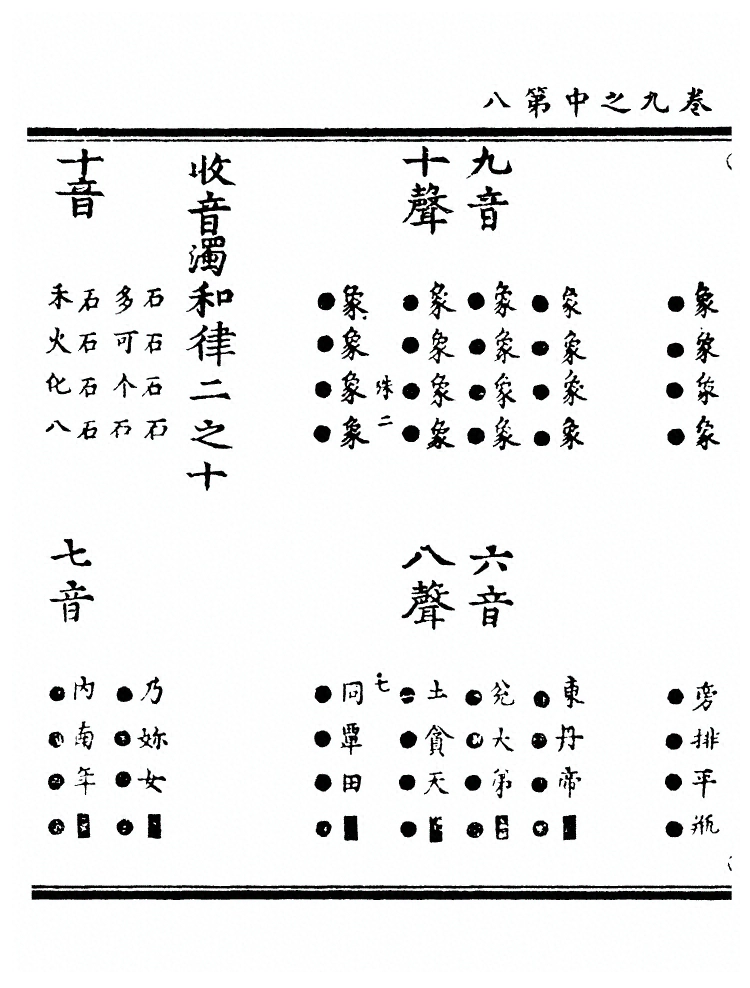 卷九之中第八
象象象象
●●●●
象象象象
●●●●
九音
象象象象
●●●●
十聲
象象象象
●●●●
二
象象象象
●●●●
收音濁和律二之十
石石石石
多可个石
石石石石
十音
禾火化八
旁排平瓶
●●●●
東丹帝■
●●●●
六音
兌大弟■
●●●●
八聲
土貪天■
●●●●
七
同覃田■
●●●●
乃妳女■
●●●●
內南年■
七音
●●●●